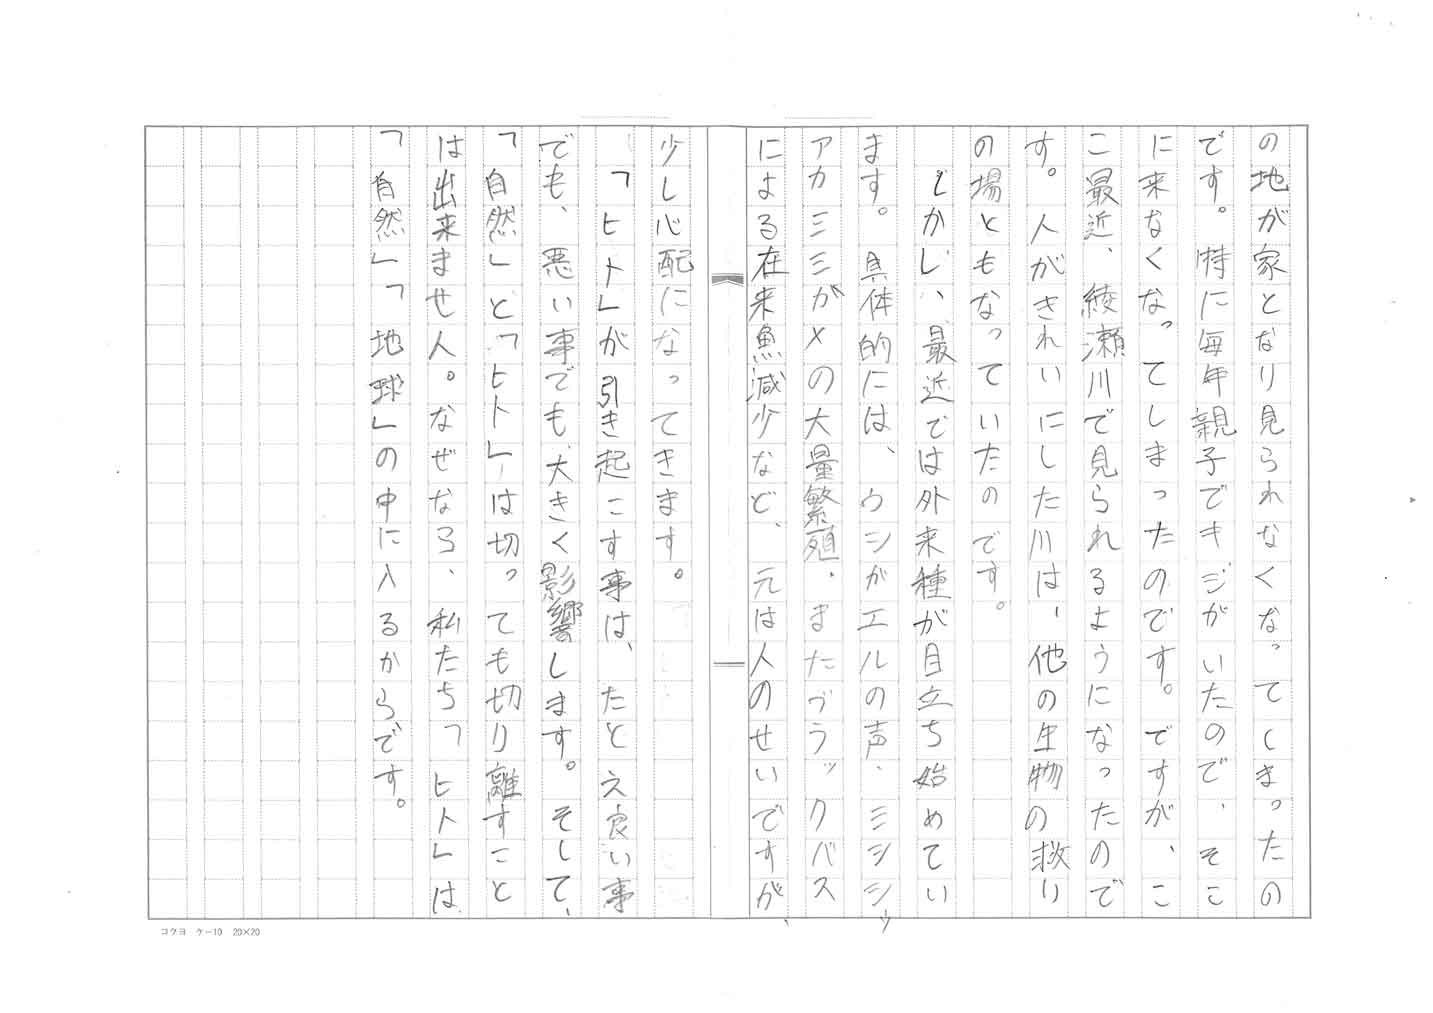 の地が家となり見られなくなってしまったの
です。特に毎年親子でキジがいたので、そこ
に来なくなってしまったのです。ですが、こ
こ最近、綾瀬川で見られるようになったので
す。人がきれいにした川は、他の生物の救い
の場ともなっていたのです。
しかし、最近では外来種が目立ち始めてい
ます。具体的には、ウシがエルの声、ミシシッ
アカミミがメの大量繁殖。またブラックバス
による在来魚減少など、元は人のせいですが、
少し心配になってきます。
「ヒト」が引き起こす事は、たとえ良い事
でも、悪い事でも、大きく影響します。そして、
「自然」と「ヒト」は切っても切り離すこと
は出来ません。なぜなら、私たち「ヒト」は
「自然」「地球」の中に入るからです。
コクヨ ケー10 20×20